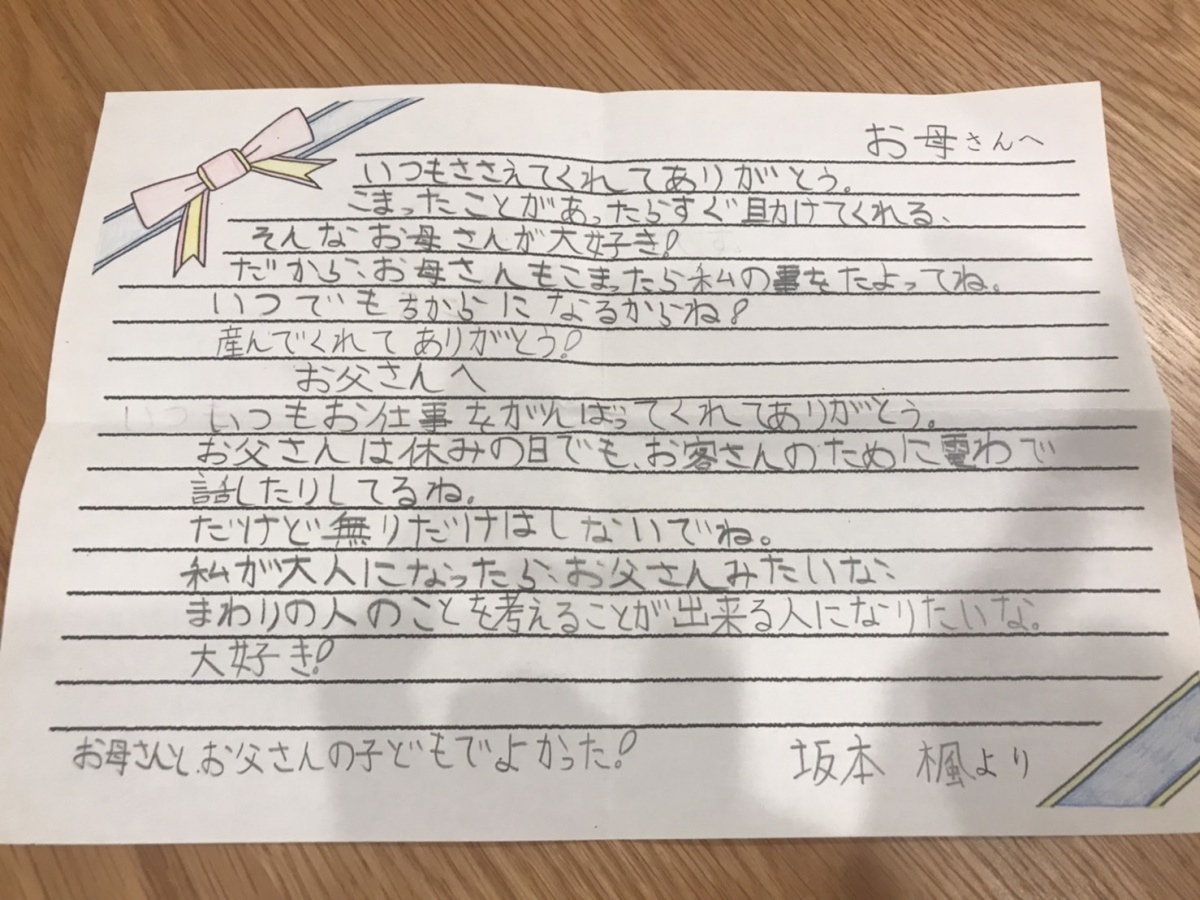 お母さんへ
いつもささえてくれてありがとう。
こまったことがあったらすぐ助けてくれる、
そんなお母さんが大好き!
だから、お母さんもこまったら私の事をたよってね。
いつでもちからになるからね!
産んでくれてありがとう!
お父さんへ
いつもお仕事をがんばってくれてありがとう。
お父さんは休みの日でも、お客さんのために電わで
話したりしてるね。
だけど無りだけはしないでね。
私が大人になったら、お父さんみたいな、
まわりの人のことを考えることが出来る人になりたいな。
大好き!
お母さんと、お父さんの子どもでよかった!
坂本 楓より